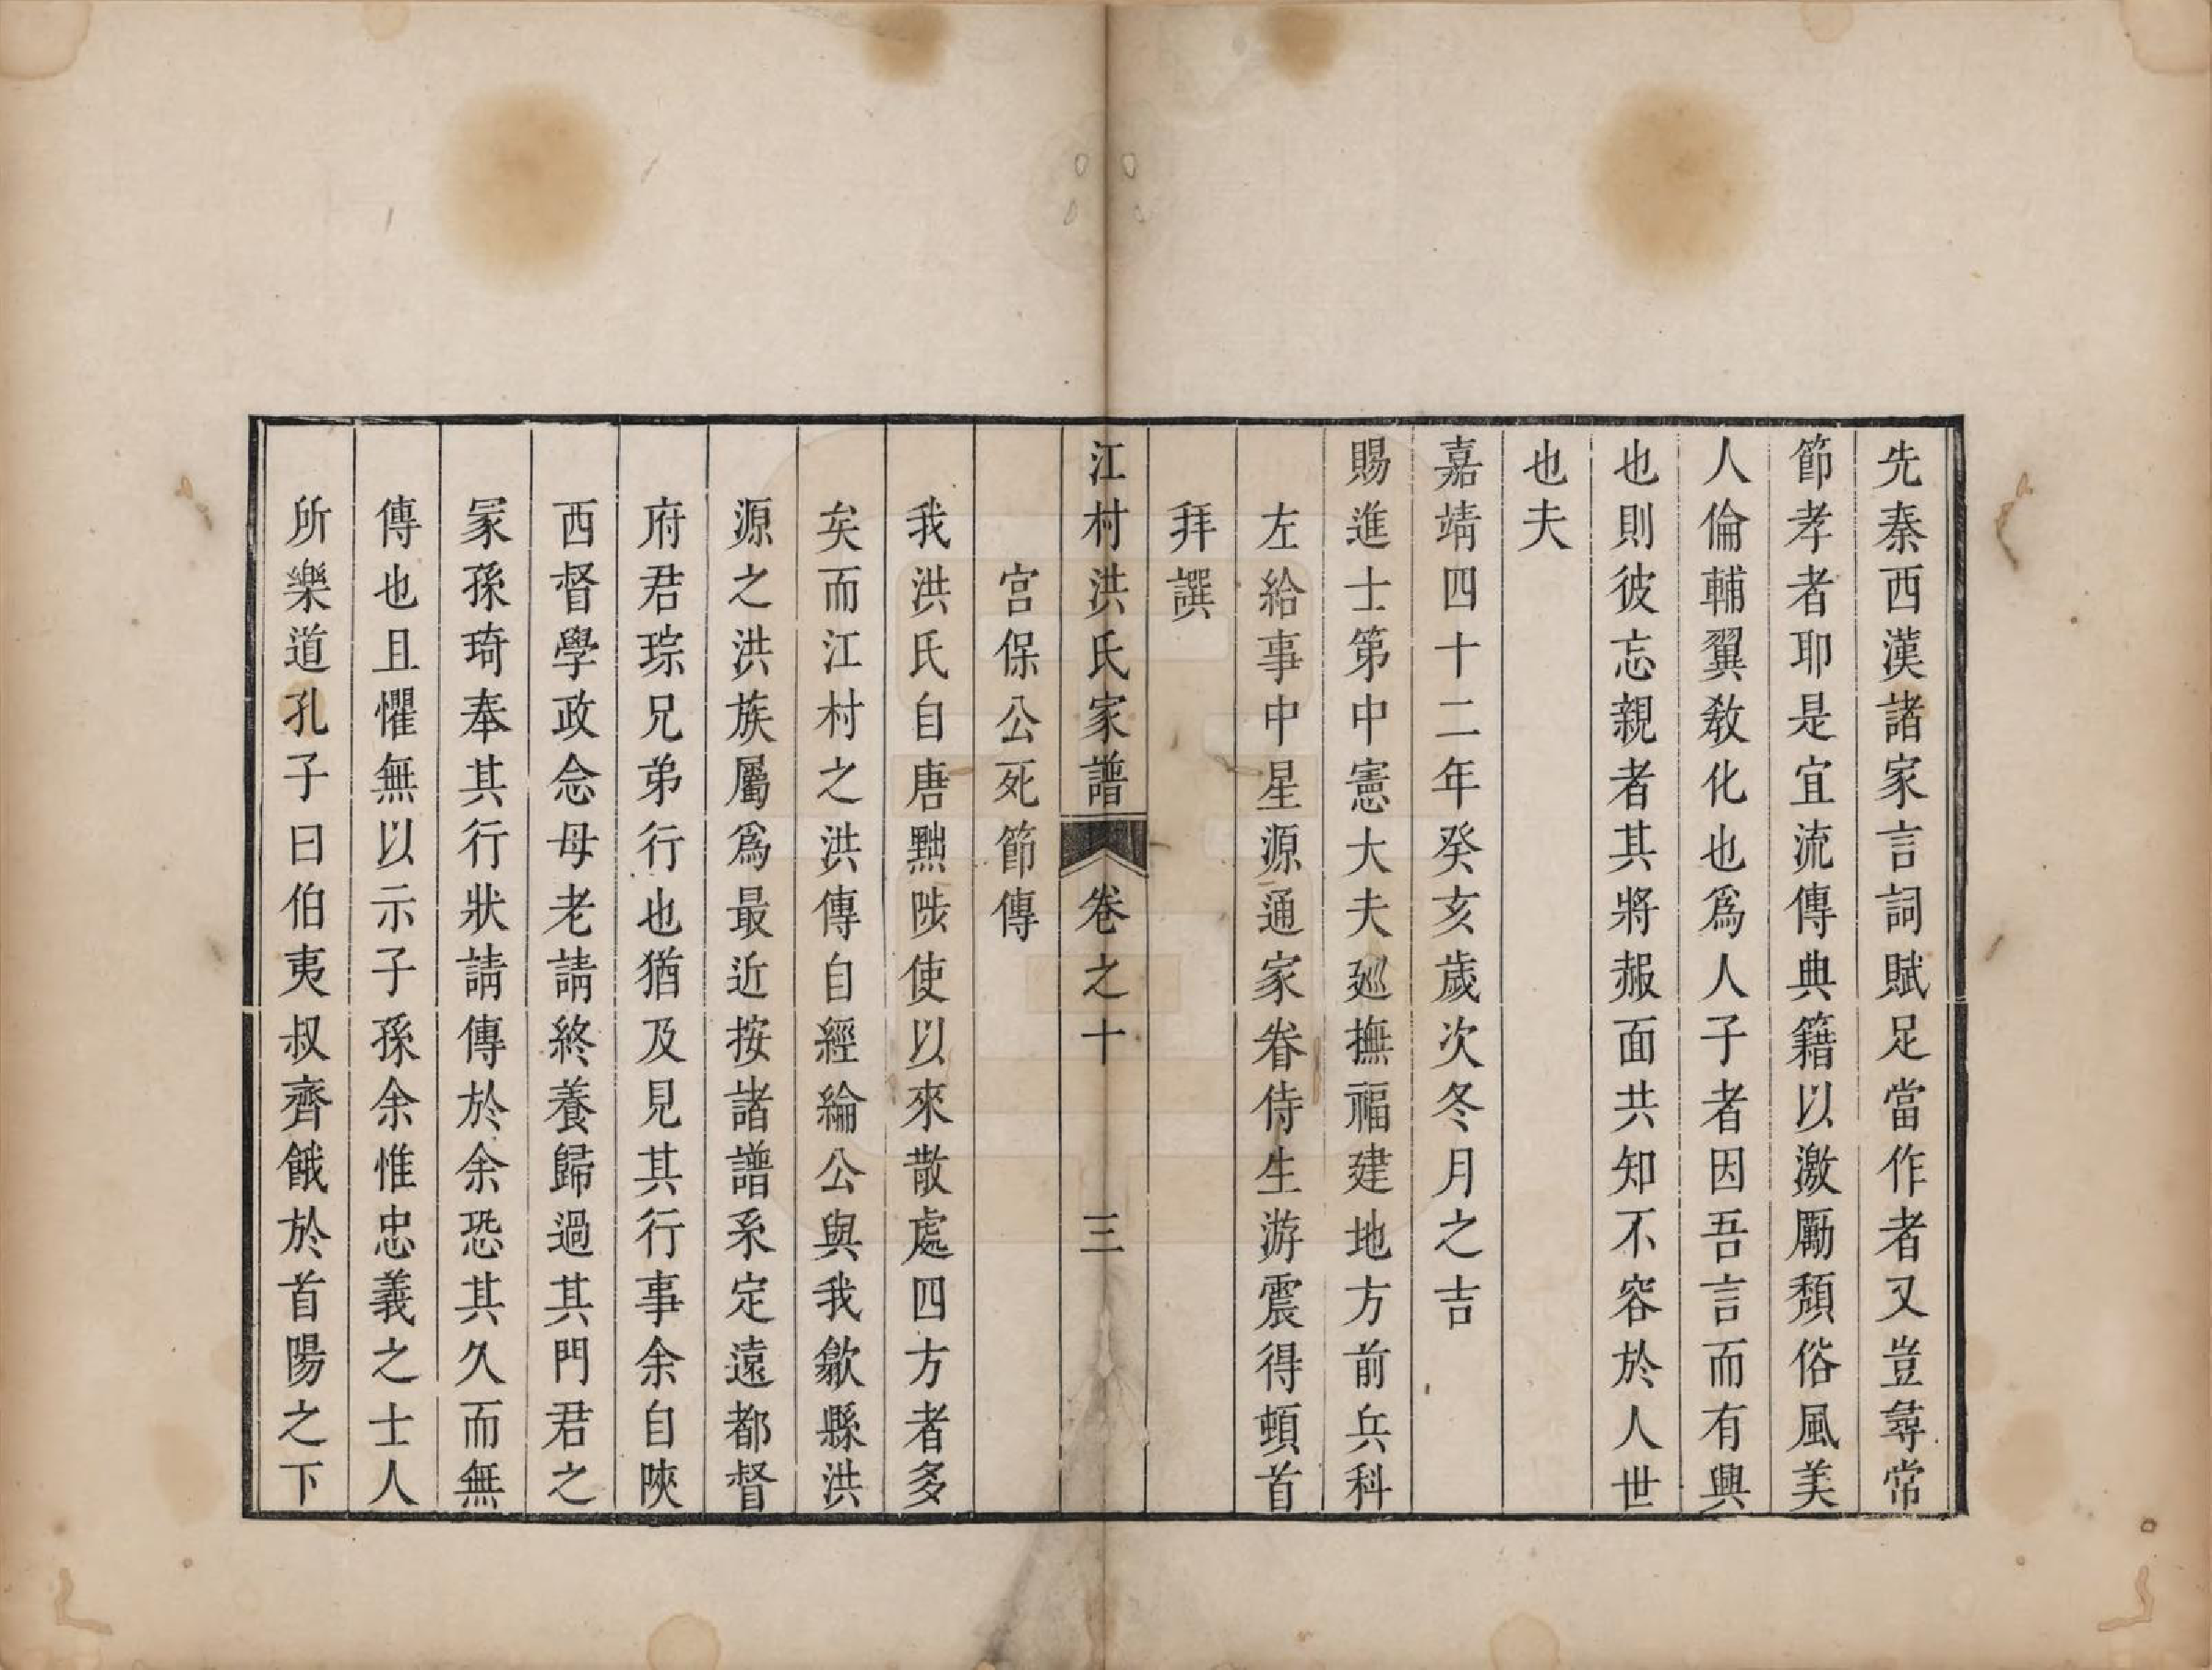 先秦西漢諸家言詞賦足當作者又豈尋常
節孝者耶是宜流傳典籍以激勵頽俗風美
人倫輔翼敎化也爲人子者因吾言而有興
也則彼忘親者其將赧面共知不容於人世
也夫
嘉靖四十二年癸亥歲次冬月之吉
賜進士第中憲大夫廵撫福建地方前兵科
左給事中星源通家眷侍生游震得頓首
拜譔
江村洪氏家譜 卷之十 三
宫保公死節傳
我洪氏自唐黜陟使以來散處四方者多
矣而江村之洪傳自經綸公與我歙縣洪
源之洪族屬爲最近按諸譜系定遠都督
府君琮兄弟行也猶及見其行事余自陜
西督學政念母老請終養歸過其門君之
冢孫琦奉其行狀請傳於余恐其久而無
傳也且懼無以示子孫余惟忠義之士人
所樂道孔子曰伯夷叔齊餓於首陽之下